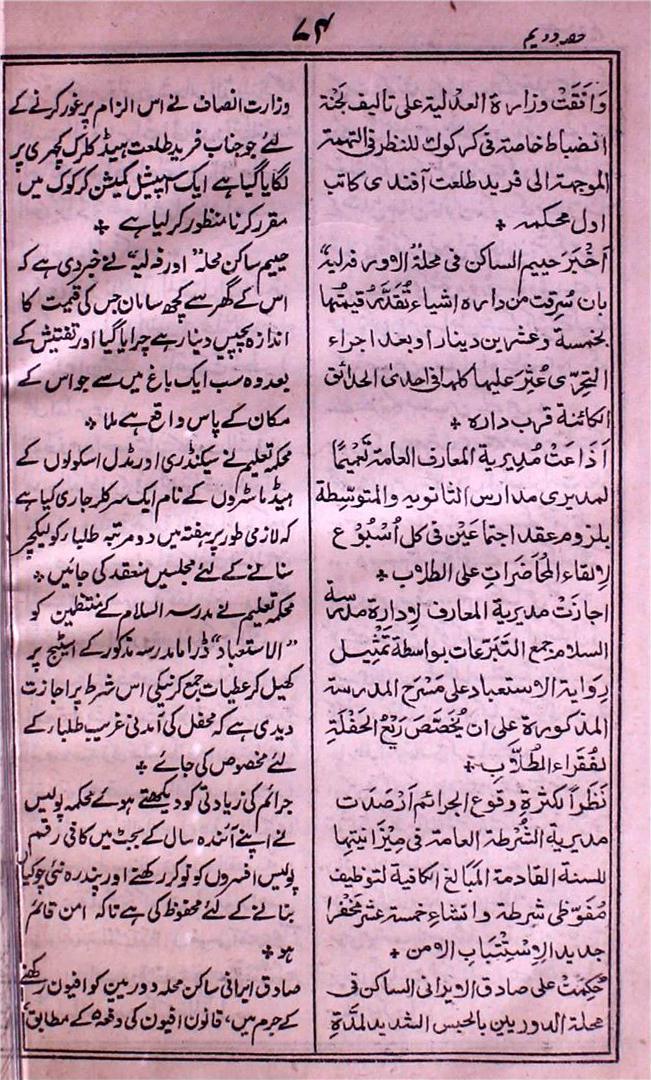 حصہ دویم
۷۴
وَافَقَتْ وزارة العدلية على تاليف لجنة
انضباط خاصة فى كركوك للنظر فى التهمة
الموجهة الى فريد طلعت آفندى كاتب
اول محكمه ٭
اَخْبَرَ حييم الساكن فى محلة "الاورفه‌لية"
بان سُرِقت من داره اشياء تُقَدَّرُ قيمتُها
بخمسة وعشرين دينارا وبعد اجراء
التحرّى عُثِرَ عليها كلها فى احدى الحدائق
الكائنة قرب داره ٭
اَذَاعَتْ مُديرية المعارف العامة تَعْمِيمًا
لمديرى مدارس الثانويه والمتوسِّطة
بلزوم عقد اجتماعَيْن فى كل اُسْبُوْع
لِالقاء المُحَاضَراتِ على الطلاب ٭
اجازتْ مديرية المعارف لِادارة مدرسة
السلام جمع التَبَرّعات بواسطة تَمْثِيل
رواية الاستعباد على مَسْرَح المدرسة
المذكورة على ان يُخَصَّصَ رَيْعُ الحَفْلَةِ
لفُقَراء الطُلّابِ ٭
نَظَراً لكثرةِ وقوع الجرائم اَرْصَدَت
مديرية الشُرطة العامة فى مِيْزانيتِها
للسنة القادمة المَبَالِغ الكافية لتوظيف
مُفَوّضى شرطة وانشاءِ خمسة عشر مَخْفَرا
جديدا لِاِسْتِتْبابِ الامن ٭
حُكِمَتْ على صادق الايرانى الساكن فى
محلة الدوريين بالحبس الشديد لمُدَّةِ
وزارت انصاف نے اس الزام پر غور کرنے کے
لئے جو جناب فرید طلعت ہیڈ کلرک کچہری پر
لگایا گیا ہے ایک اسپیشل کمیشن کرکوک میں
مقرر کرنا منظور کر لیا ہے ٭
حییم ساکن محلہ "اورفہ لیہ" نے خبر دی ہے کہ
اس کے گھر سے کچھ سامان جس کی قیمت کا
اندازہ پچیس دینار ہے چرایا گیا اور تفتیش کے
بعد وہ سب ایک باغ میں سے جو اس کے
مکان کے پاس واقع ہے ملا ٭
محکمہ تعلیم نے سیکنڈری اور مڈل اسکولوں کے
ہیڈ ماسٹروں کے نام ایک سرکلر جاری کیا ہے
کہ لازمی طور پر ہفتہ میں دو مرتبہ طلبار کو لیکچر
سنانے کے لئے مجلسیں منعقد کی جائیں ٭
محکمہ تعلیم نے مدرسہ السلام کے منتظمین کو
"الاستعباد" ڈراما مدرسہ مذکور کے اسٹیج پر
کھیل کر عطیات جمع کرنیکی اس شرط پر اجازت
دیدی ہے کہ محفل کی آمدنی غریب طلبار کے
لئے مخصوص کی جائے ٭
جرائم کی زیادتی کو دیکھتے ہوئے محکمہ پولیس
نے اپنے آئندہ سال کے بجٹ میں کافی رقم
پولیس افسروں کو نوکر رکھنے اور پندرہ نئی چوکیاں
بنانے کے لئے محفوظ کی ہے تاکہ امن قائم
ہو ٭
صادق ایرانی ساکن محلہ دوریین کو افیون رکھنے
کے جرم میں، قانون افیون کی دفعہ ۵ کے مطابق